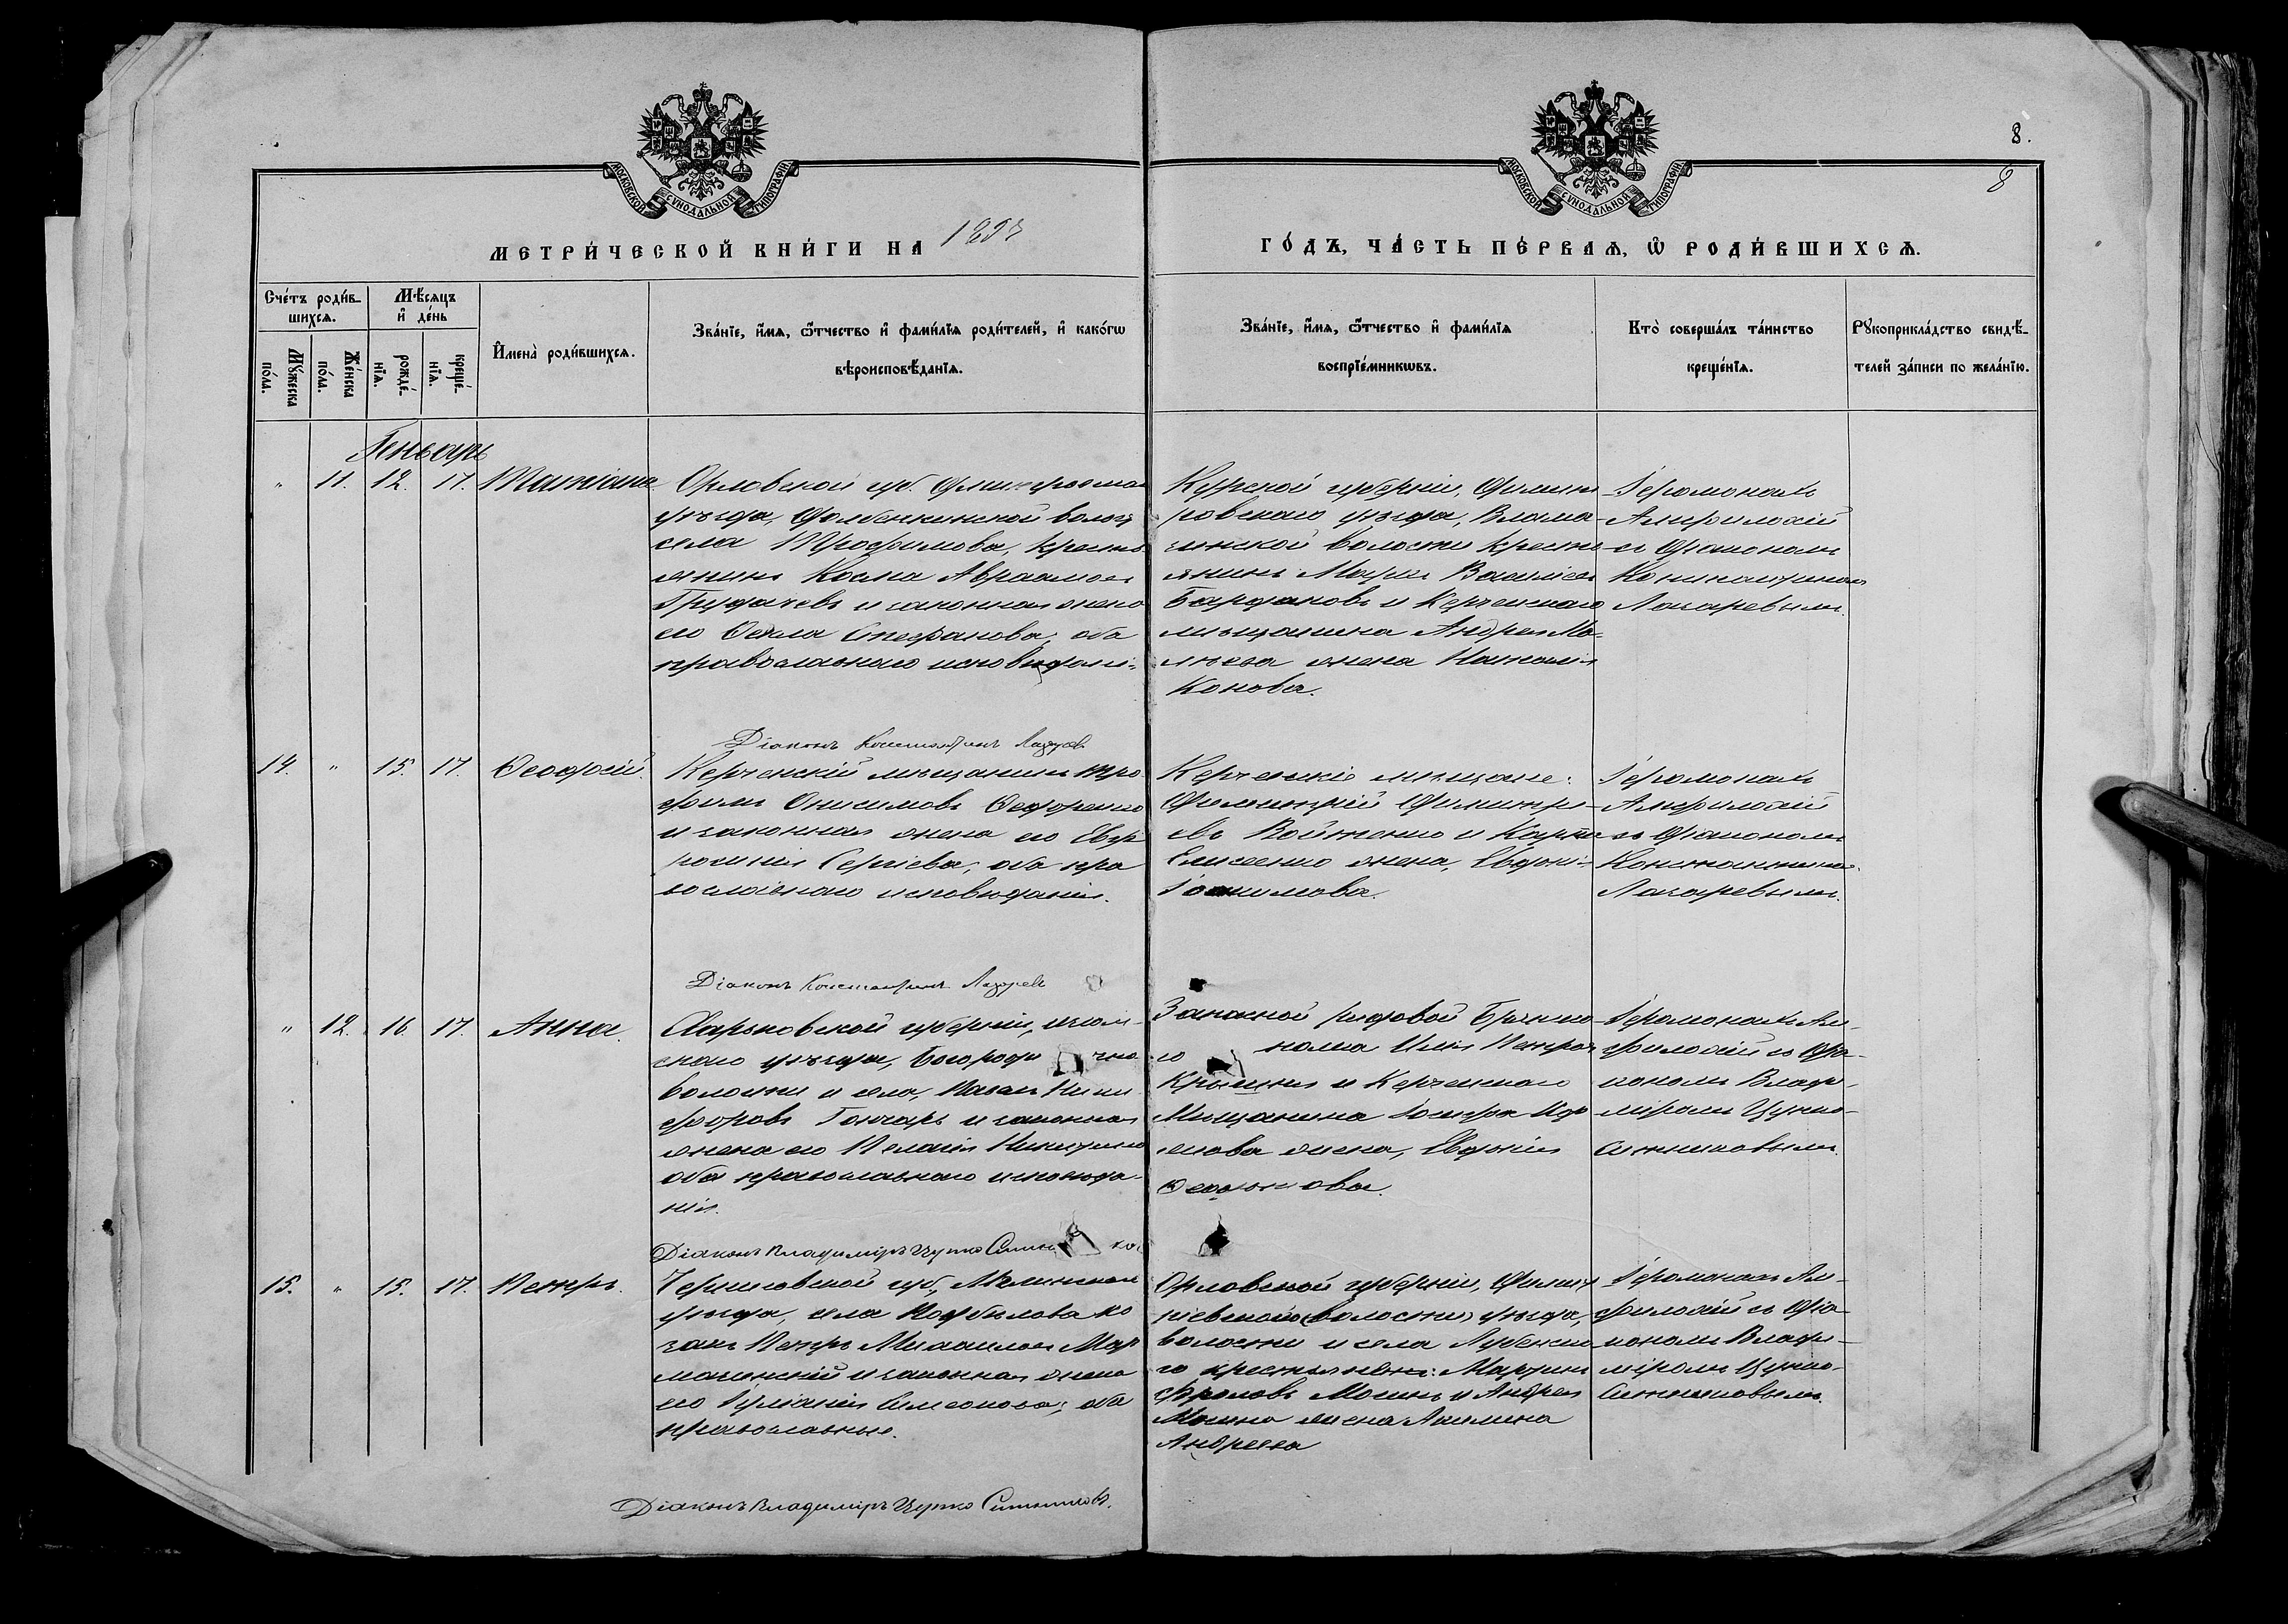 МОСКОВСКОЙ СУНОДАЛЬНОЙ ТИПОГРАФІИ
МОСКОВСКОЙ СУНОДАЛЬНОЙ ТИПОГРАФІИ
8.
8
МЕТРИ́ЧЕСКОЙ КНИ́ГИ НА
ГО́ДЪ, ЧА́СТЬ ПЕ́РВАѦ, Ѡ҆ РОДИ́ВШИХСѦ.
Сче́тъ роди́в-
шихсѧ.
Мꙋ́жеска
по́ла.
Же́нска
по́ла.
Мѣ́сѧцъ
и҆ де́нь
рожде́-
нїѧ.
креще́-
нїѧ.
И҆мена̀ роди́вшихсѧ.
Зва́нїе, и҆́мѧ, ѻ҆́тчество и҆ фами́лїѧ роди́телей, и҆ како́гѡ
вѣроисповѣ́данїѧ.
Зва́нїе, и҆́мѧ, ѻ҆́тчество и҆ фами́лїѧ
воспрїе́мникѡвъ.
Кто̀ соверша́лъ та́инство
креще́нїѧ.
Рꙋкоприкла́дство свидѣ́-
телей за́писи по жела́нїю.
Геньварь
" 11. 12. 17. Татіана.
Орловской губ. Дмитровскаго
уѣзда, волости
села Трофимова, кресть
янинъ Косма Авраамовъ
Грудачевъ и законная жена
его Ѳекла Стефанова, оба
православнаго исповѣдані-
Курской губерніи, Дмит
ровскаго уѣзда,
волости кресть
янинъ Василіевъ
и Керченскаго
мѣщанина Андрея Мо-
жена Наталія
Конова.
Іеромонахъ
Амфилохій
съ Діакономъ
Константиномъ
Лазаревымъ.
Діаконъ Константинъ Лазаревъ
14. " 15. 17. Ѳеодосій.
Керченскій мѣщанинъ Тро
фимъ Онисимовъ Ѳедоренко
и законная жена его Евф
росинія Сергіева, оба пра
вославнаго исповѣданія.
Керченскіе мѣщане:
Дмитрій Димитрі-
евъ Войтенко и Карпа
Елисеенко жена, Евдокі-
Іоакимова.
Іеромонахъ
Амфилохій
съ Діакономъ
Константиномъ
Лазаревымъ.
Діаконъ Константинъ Лазаревъ
" 12. 16. 17. Анна.
Харьковской губерніи, Изюм-
скаго уѣзда, Богороди чна
волости и села, Павелъ Ники
форовъ Гончаръ и законная
жена его Пелагія Никитина
оба православнаго исповѣда-
нія.
Запасной рядовой
го полка Илія Петровъ
и Керченскаго
Мѣщанина Іосифа
жена, Евдокія
Ѳ ова.
Іеромонахъ Ам-
филохій съ Діа-
кономъ Влади-
міромъ Цупко-
Ситниковымъ.
Діаконъ Владиміръ Цупко Ситни ко
15. " 15. 17. Петръ.
Черниговской губ., Мглинскаго
уѣзда, села ко
закъ Петръ Михаиловъ Мар
и законная жена
его Іуліанія Симеонова, оба
православные.
Орловской губерніи, Димит
ріевской (волости) уѣзда,
волости и села
го крестьяне: Мартинъ
Фроловъ Мосинъ и Андрея
Мосина жена Акилина
Андреева
Іеромонахъ Ам-
филохій съ Діа-
кономъ Влади-
міромъ Цупко-
Ситниковымъ.
Діаконъ Владиміръ Цупко Ситниковъ.